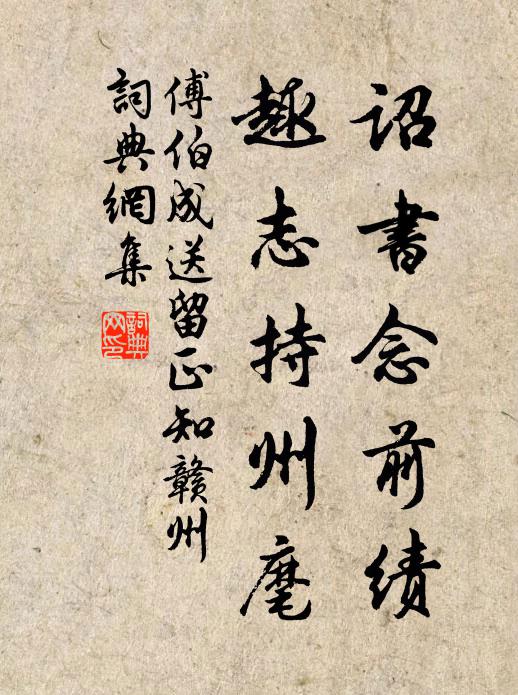 詔書念前績
趣志持州麾
傅伯成送留正知赣州
詞典網集
詞典網印